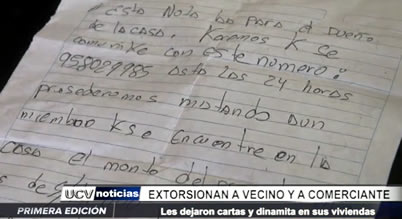 esta Nota ba para el Dueño
de la casa. Karemos k se
comunike con este numero:
958029985 asta las 24 horas
prosederemos matando aun
miembro kse encuentre en la
casa el monto del
UCV noticias EXTORSIONAN A VECINO Y A COMERCIANTE
PRIMERA EDICIÓN Les dejaron cartas y dinamita en sus viviendas